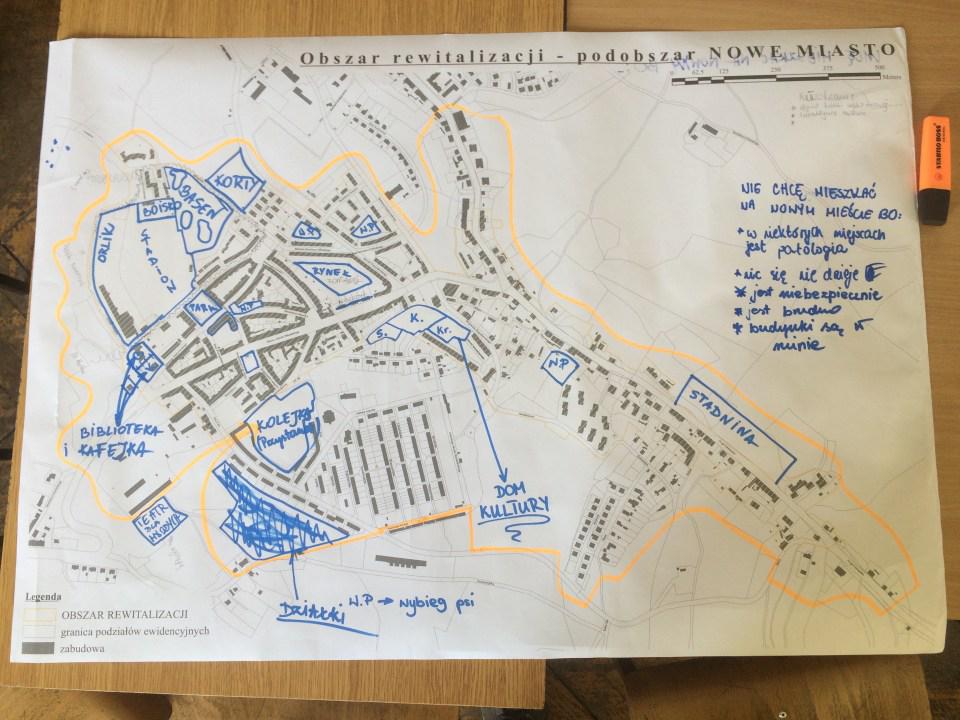 Obszar rewitalizacji - podobszar NOWE MIASTO
0 62,5 125 250 375 500
Meters
STABILO BOSS
NIE CHCĘ MIESZKAĆ
NA NOWYM MIEŚCIE BO:
* w niektórych miejscach
jest patologia
* nic się nie dzieje
* jest niebezpiecznie
* jest brudno
* budynki są w
ruinie
KORTY
BASEN
BOISKO
ORLIK
STADION
N.P
RYNEK
PARK
N.P
S.
K.
Kr.
N.P
STADNINA
KOLEJKA
BIBLIOTEKA
i KAFEJKA
DOM
KULTURY
TEATR
DLA
DZIAŁKI
N.P → wybieg psi
Legenda
OBSZAR REWITALIZACJI
granica podziałów ewidencyjnych
zabudowa